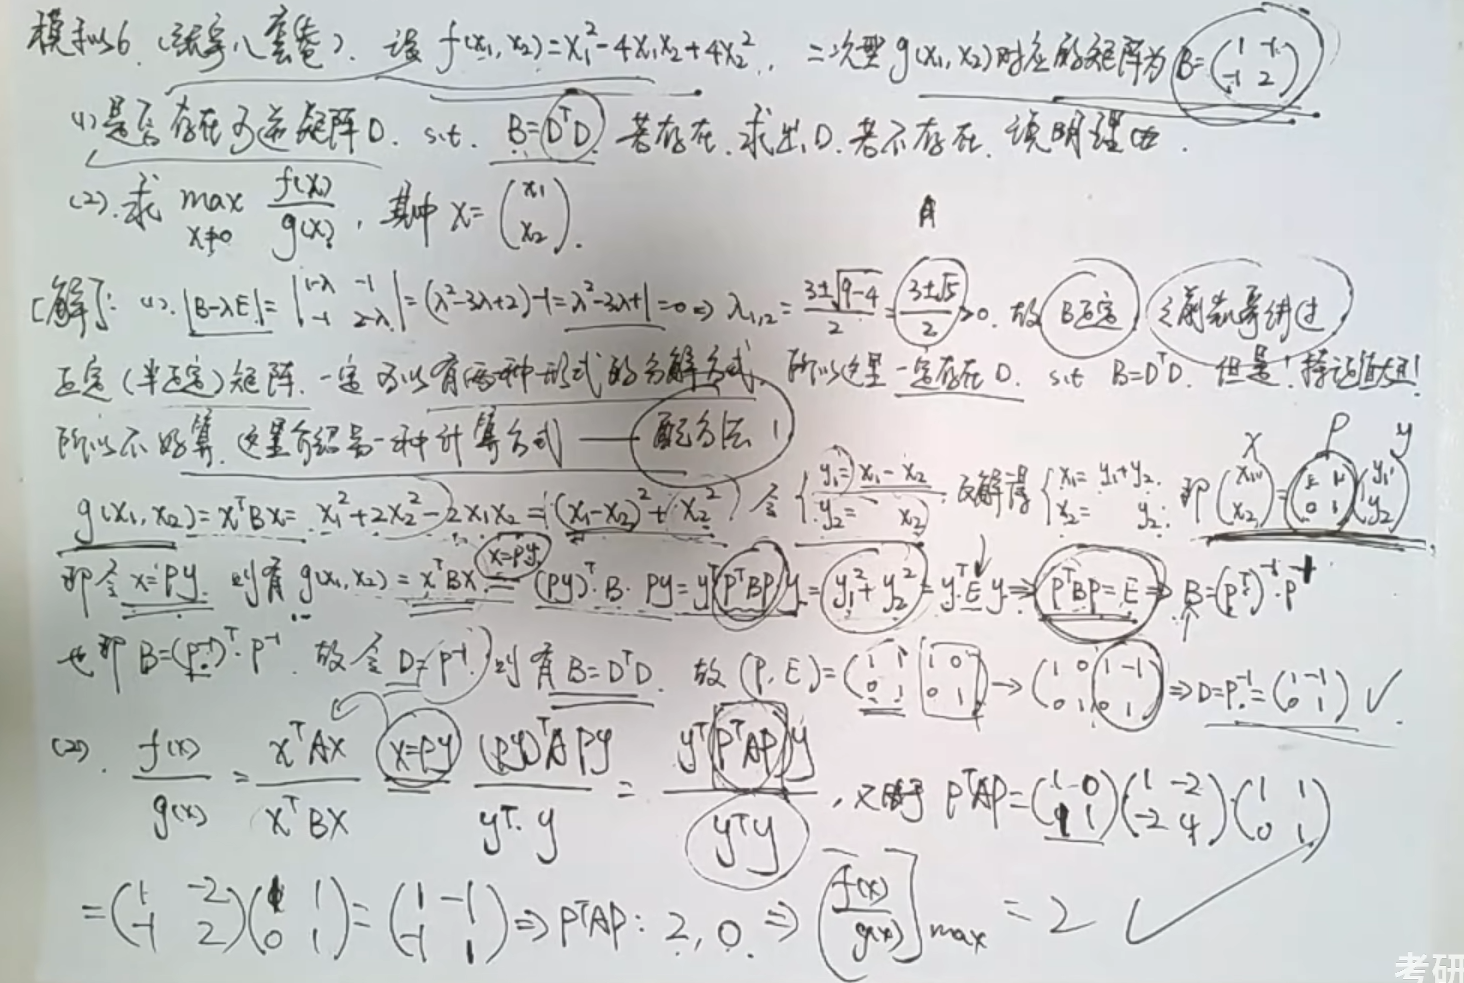 模拟6 (张宇八套卷). 设 f(x₁, x₂)=x₁²-4x₁x₂+4x₂², 二次型 g(x₁, x₂)对应的矩阵为 B=(1 -1; -1 2)
(1) 是否存在可逆矩阵D. s.t. B=DᵀD 若存在. 求出D. 若不存在. 说明理由.
(2). 求 max_{x≠0} f(x)/g(x), 其中 x=(x₁; x₂).
A
[解]: (1). |B-λE|=|1-λ -1; -1 2-λ|=(λ²-3λ+2)-1=λ²-3λ+1=0⇒λ₁,₂=(3±√(9-4))/2=(3±√5)/2>0. 故 B正定 之前
正定(半正定)矩阵. 一定可以有两种形式的分解方式. 所以这里一定存在D. s.t B=DᵀD. 但是! 特征值太丑!
所以不好算. 这里介绍另一种计算方式——配方法!
g(x₁, x₂)=xᵀBx=x₁²+2x₂²-2x₁x₂=(x₁-x₂)²+x₂² 令 {y₁=x₁-x₂ y₂=x₂. 反解得 {x₁=y₁+y₂. x₂=y₂. 即 (x₁; x₂)=(1 1; 0 1)(y₁; y₂) x P y
即令 x=Py. 则有 g(x₁, x₂)=xᵀBx x=Py (Py)ᵀ·B·Py=yᵀPᵀBPy=y₁²+y₂²=yᵀEy⇒PᵀBP=E⇒B=(Pᵀ)⁻¹·P⁻¹
也即 B=(P⁻¹)ᵀ·P⁻¹. 故令 D=P⁻¹. 则有 B=DᵀD. 故 (P, E)=(1 1 1 0; 0 1 0 1)→(1 0 1 -1; 0 1 0 1)⇒D=P⁻¹=(1 -1; 0 1) ✓.
(2). f(x)/g(x)=xᵀAx/xᵀBx x=Py (Py)ᵀAPy/yᵀ·y=yᵀPᵀAPy/yᵀy, 又由于 PᵀAP=(1 0; 1 1)(1 -2; -2 4)·(1 1; 0 1)
=(1 -2; -1 2)(1 1; 0 1)=(1 -1; -1 1)⇒PᵀAP: 2, 0.⇒[f(x)/g(x)]max=2 ✓
考研